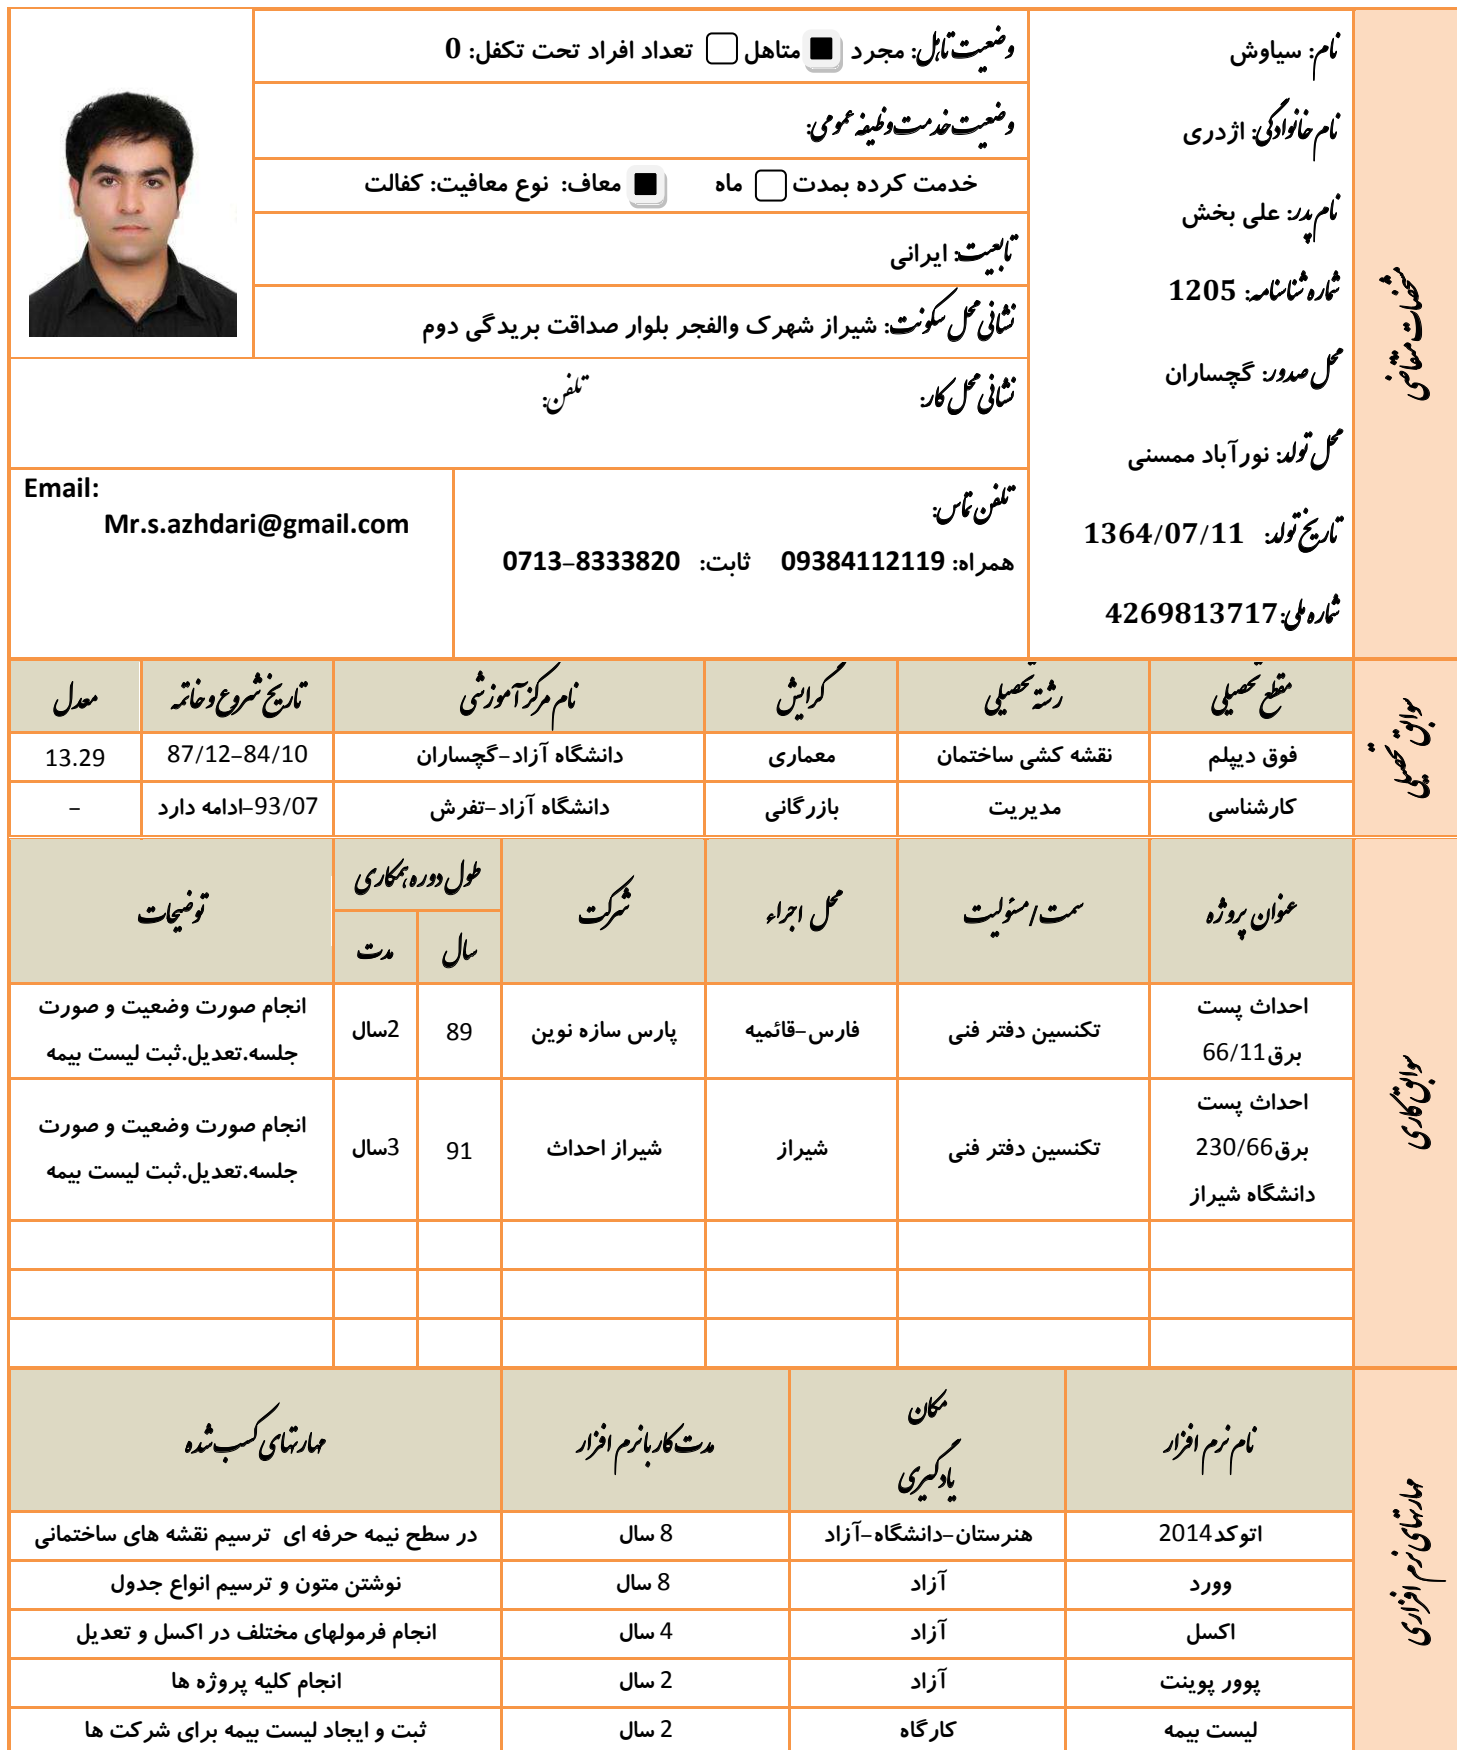 مشخصات متقاضی
نام: سیاوش
نام خانوادگی: اژدری
نام پدر: علی بخش
شماره شناسنامه: 1205
محل صدور: گچساران
محل تولد: نورآباد ممسنی
تاریخ تولد: 1364/07/11
شماره ملی: 4269813717
وضعیت تاهل: مجرد ■ متاهل □ تعداد افراد تحت تکفل: 0
وضعیت خدمت وظیفه عمومی:
خدمت کرده بمدت □ ماه ■ معاف: نوع معافیت: کفالت
تابعیت: ایرانی
نشانی محل سکونت: شیراز شهرک والفجر بلوار صداقت بریدگی دوم
نشانی محل کار: تلفن:
تلفن تماس:
همراه: 09384112119 ثابت: 0713-8333820
Email:
Mr.s.azhdari@gmail.com
سوابق تحصیلی
مقطع تحصیلی رشته تحصیلی گرایش نام مرکز آموزشی تاریخ شروع و خاتمه معدل
فوق دیپلم نقشه کشی ساختمان معماری دانشگاه آزاد-گچساران 87/12-84/10 13.29
کارشناسی مدیریت بازرگانی دانشگاه آزاد-تفرش 93/07-ادامه دارد -
سوابق کاری
عنوان پروژه سمت/مسئولیت محل اجراء شرکت طول دوره همکاری توضیحات
سال مدت
احداث پست
برق66/11
تکنسین دفتر فنی فارس-قائمیه پارس سازه نوین 89 2سال
انجام صورت وضعیت و صورت
جلسه.تعدیل.ثبت لیست بیمه
احداث پست
برق230/66
دانشگاه شیراز
تکنسین دفتر فنی شیراز شیراز احداث 91 3سال
انجام صورت وضعیت و صورت
جلسه.تعدیل.ثبت لیست بیمه
مهارتهای نرم افزاری
نام نرم افزار
مکان
یادگیری
مدت کار با نرم افزار مهارتهای کسب شده
اتوکد2014 هنرستان-دانشگاه-آزاد 8 سال در سطح نیمه حرفه ای ترسیم نقشه های ساختمانی
وورد آزاد 8 سال نوشتن متون و ترسیم انواع جدول
اکسل آزاد 4 سال انجام فرمولهای مختلف در اکسل و تعدیل
پوور پوینت آزاد 2 سال انجام کلیه پروژه ها
لیست بیمه کارگاه 2 سال ثبت و ایجاد لیست بیمه برای شرکت ها